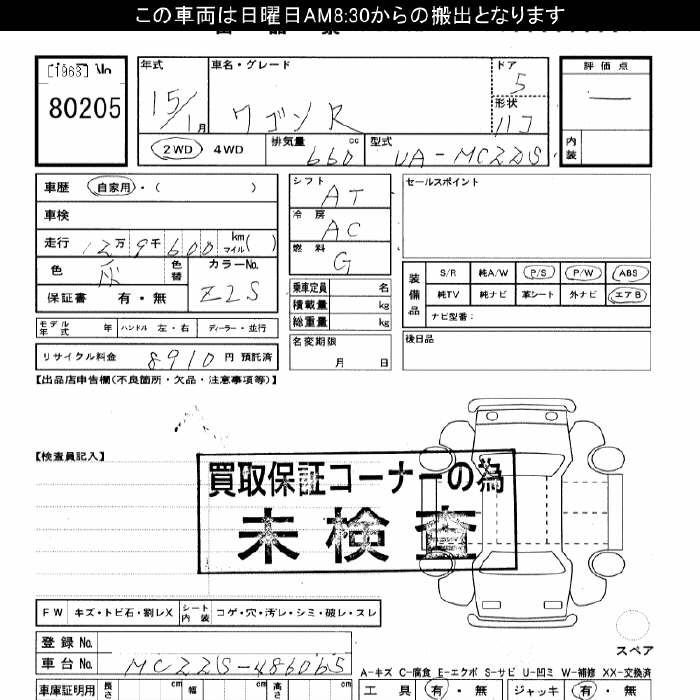 この車両は日曜日AM8:30からの搬出となります
[1963] No
80205
年式 15/1月
車名・グレード ワゴンR
ドア 5
形状 ハコ
評価点 —
内装
2WD 4WD
排気量 660 cc
型式 UA-MC22S
車歴 自家用・( )
車検
走行 12万9千600 km マイル( )
色 灰 色替
カラーNo. Z2S
保証書 有・無
モデル年式 年 ハンドル 左・右 ディーラー・並行
リサイクル料金 8910 円 預託済
シフト AT
冷房 AC
燃料 G
乗車定員 名
積載量 kg
総重量 kg
名変期限 月 日
セールスポイント
装備品
S/R 純A/W P/S P/W ABS
純TV 純ナビ 革シート 外ナビ エアB
ナビ型番:
後日品
【出品店申告欄(不良箇所・欠品・注意事項等)】
【検査員記入】
買取保証コーナーの為
未検査
FW キズ・トビ石・割レX シート内装 コゲ・穴・汚レ・シミ・破レ・スレ
登録No.
車台No. MC22S-486065
スペア
A-キズ C-腐食 E-エクボ S-サビ U-凹ミ W-補修 XX-交換済
車庫証明用 長さ cm 幅 cm 高さ cm
工具 有・無 ジャッキ 有・無